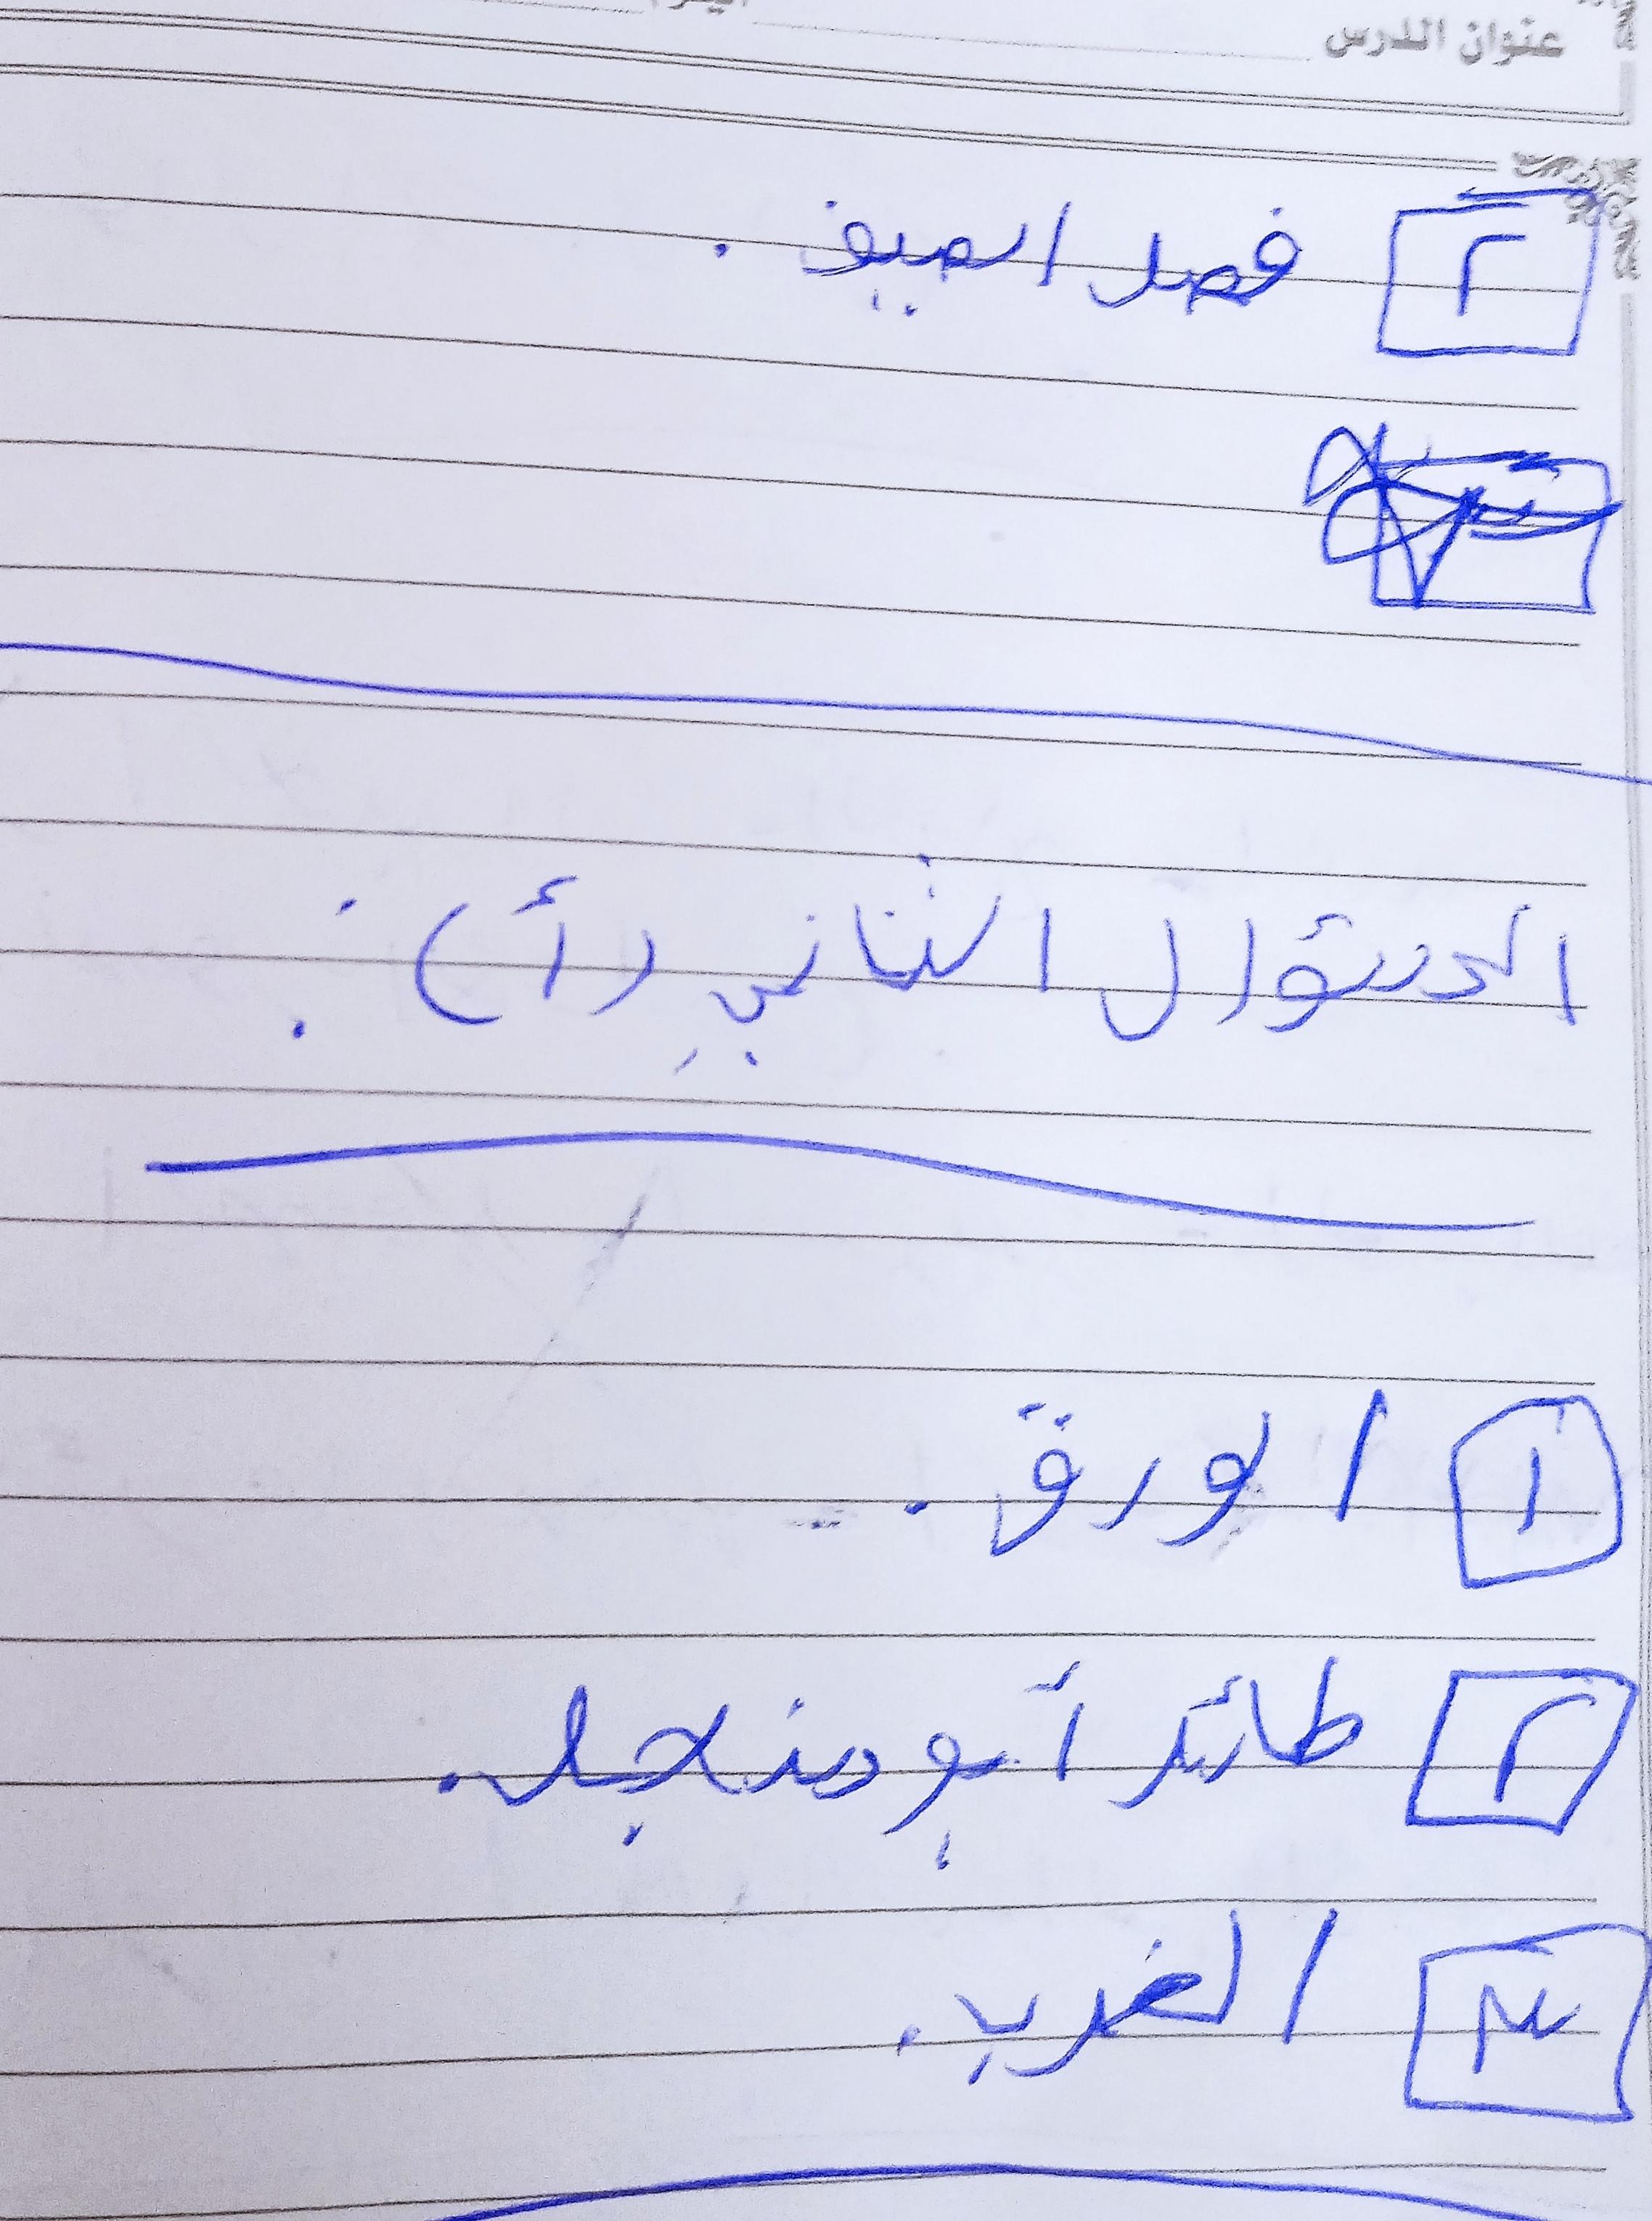 عنوان الدرس
٢ فصل الصيف .
السؤال الثاني (أ) :
١ الورق .
٢ طائر أبو منجل .
٣ الغرب .